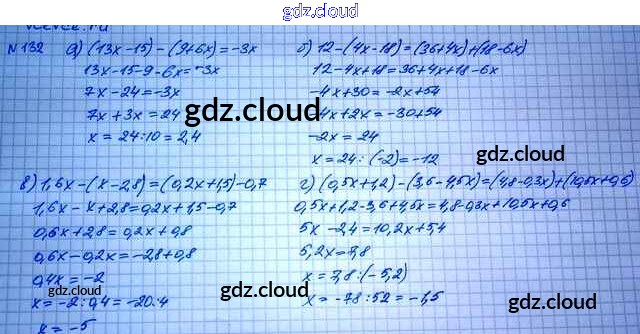 gdz.cloud
№132 а) (13x-15)-(9+6x)=-3x
13x-15-9-6x=-3x
7x-24=-3x
7x+3x=24
x=24:10=2,4
б) 12-(4x-18)=(36+4x)+(18-6x)
12-4x+18=36+4x+18-6x
-4x+30=-2x+54
-4x+2x=-30+54
-2x=24
x=24:(-2)=-12
gdz.cloud
gdz.cloud
gdz.cloud
в) 1,6x-(x-2,8)=(0,2x+1,5)-0,7
1,6x-x+2,8=0,2x+1,5-0,7
0,6x+2,8=0,2x+0,8
0,6x-0,2x=-2,8+0,8
0,4x=-2
x=-2:0,4=-20:4
x=-5
г) (0,5x+1,2)-(3,6-4,5x)=(4,8-0,3x)+(10,5x+0,6)
0,5x+1,2-3,6+4,5x=4,8-0,3x+10,5x+0,6
5x-2,4=10,2x+5,4
5,2x=7,8
x=7,8:(-5,2)
x=-78:52=-1,5
gdz.cloud
gdz.cloud
gdz.cloud